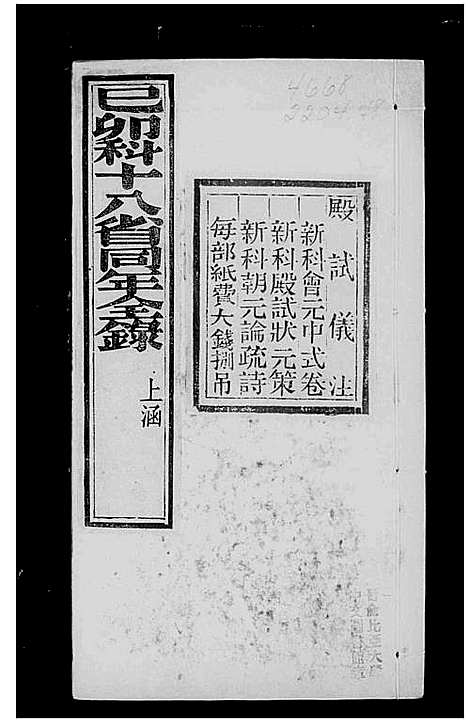 4668
己卯科十八省同年大全錄
上涵
殿試儀注
新科會元中式卷
新科殿試狀元策
新科朝元論疏詩
每部紙費大錢捌吊